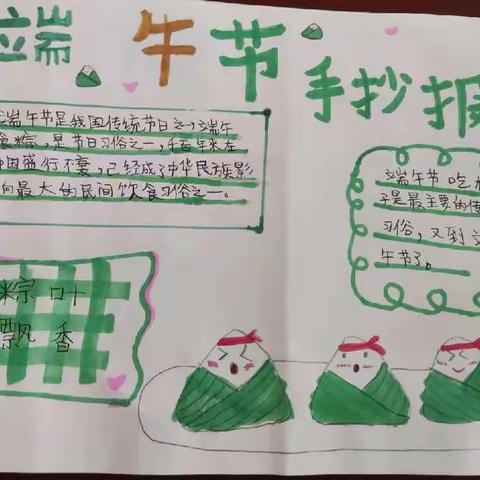 端午节
手抄报
端午节是我国传统节日之一,端午
食粽,是节日习俗之一,千百年来在
中国盛行不衰,已经成了中华民族影
响最大的民间饮食习俗之一。
端午节吃粽
子是最主要的传
习俗,又到
午节了。
粽叶
飘香